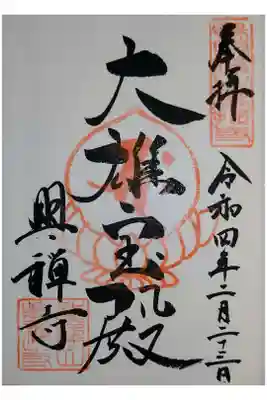 奉拝
令和四年二月二十二日
大雄宝殿
興禅寺